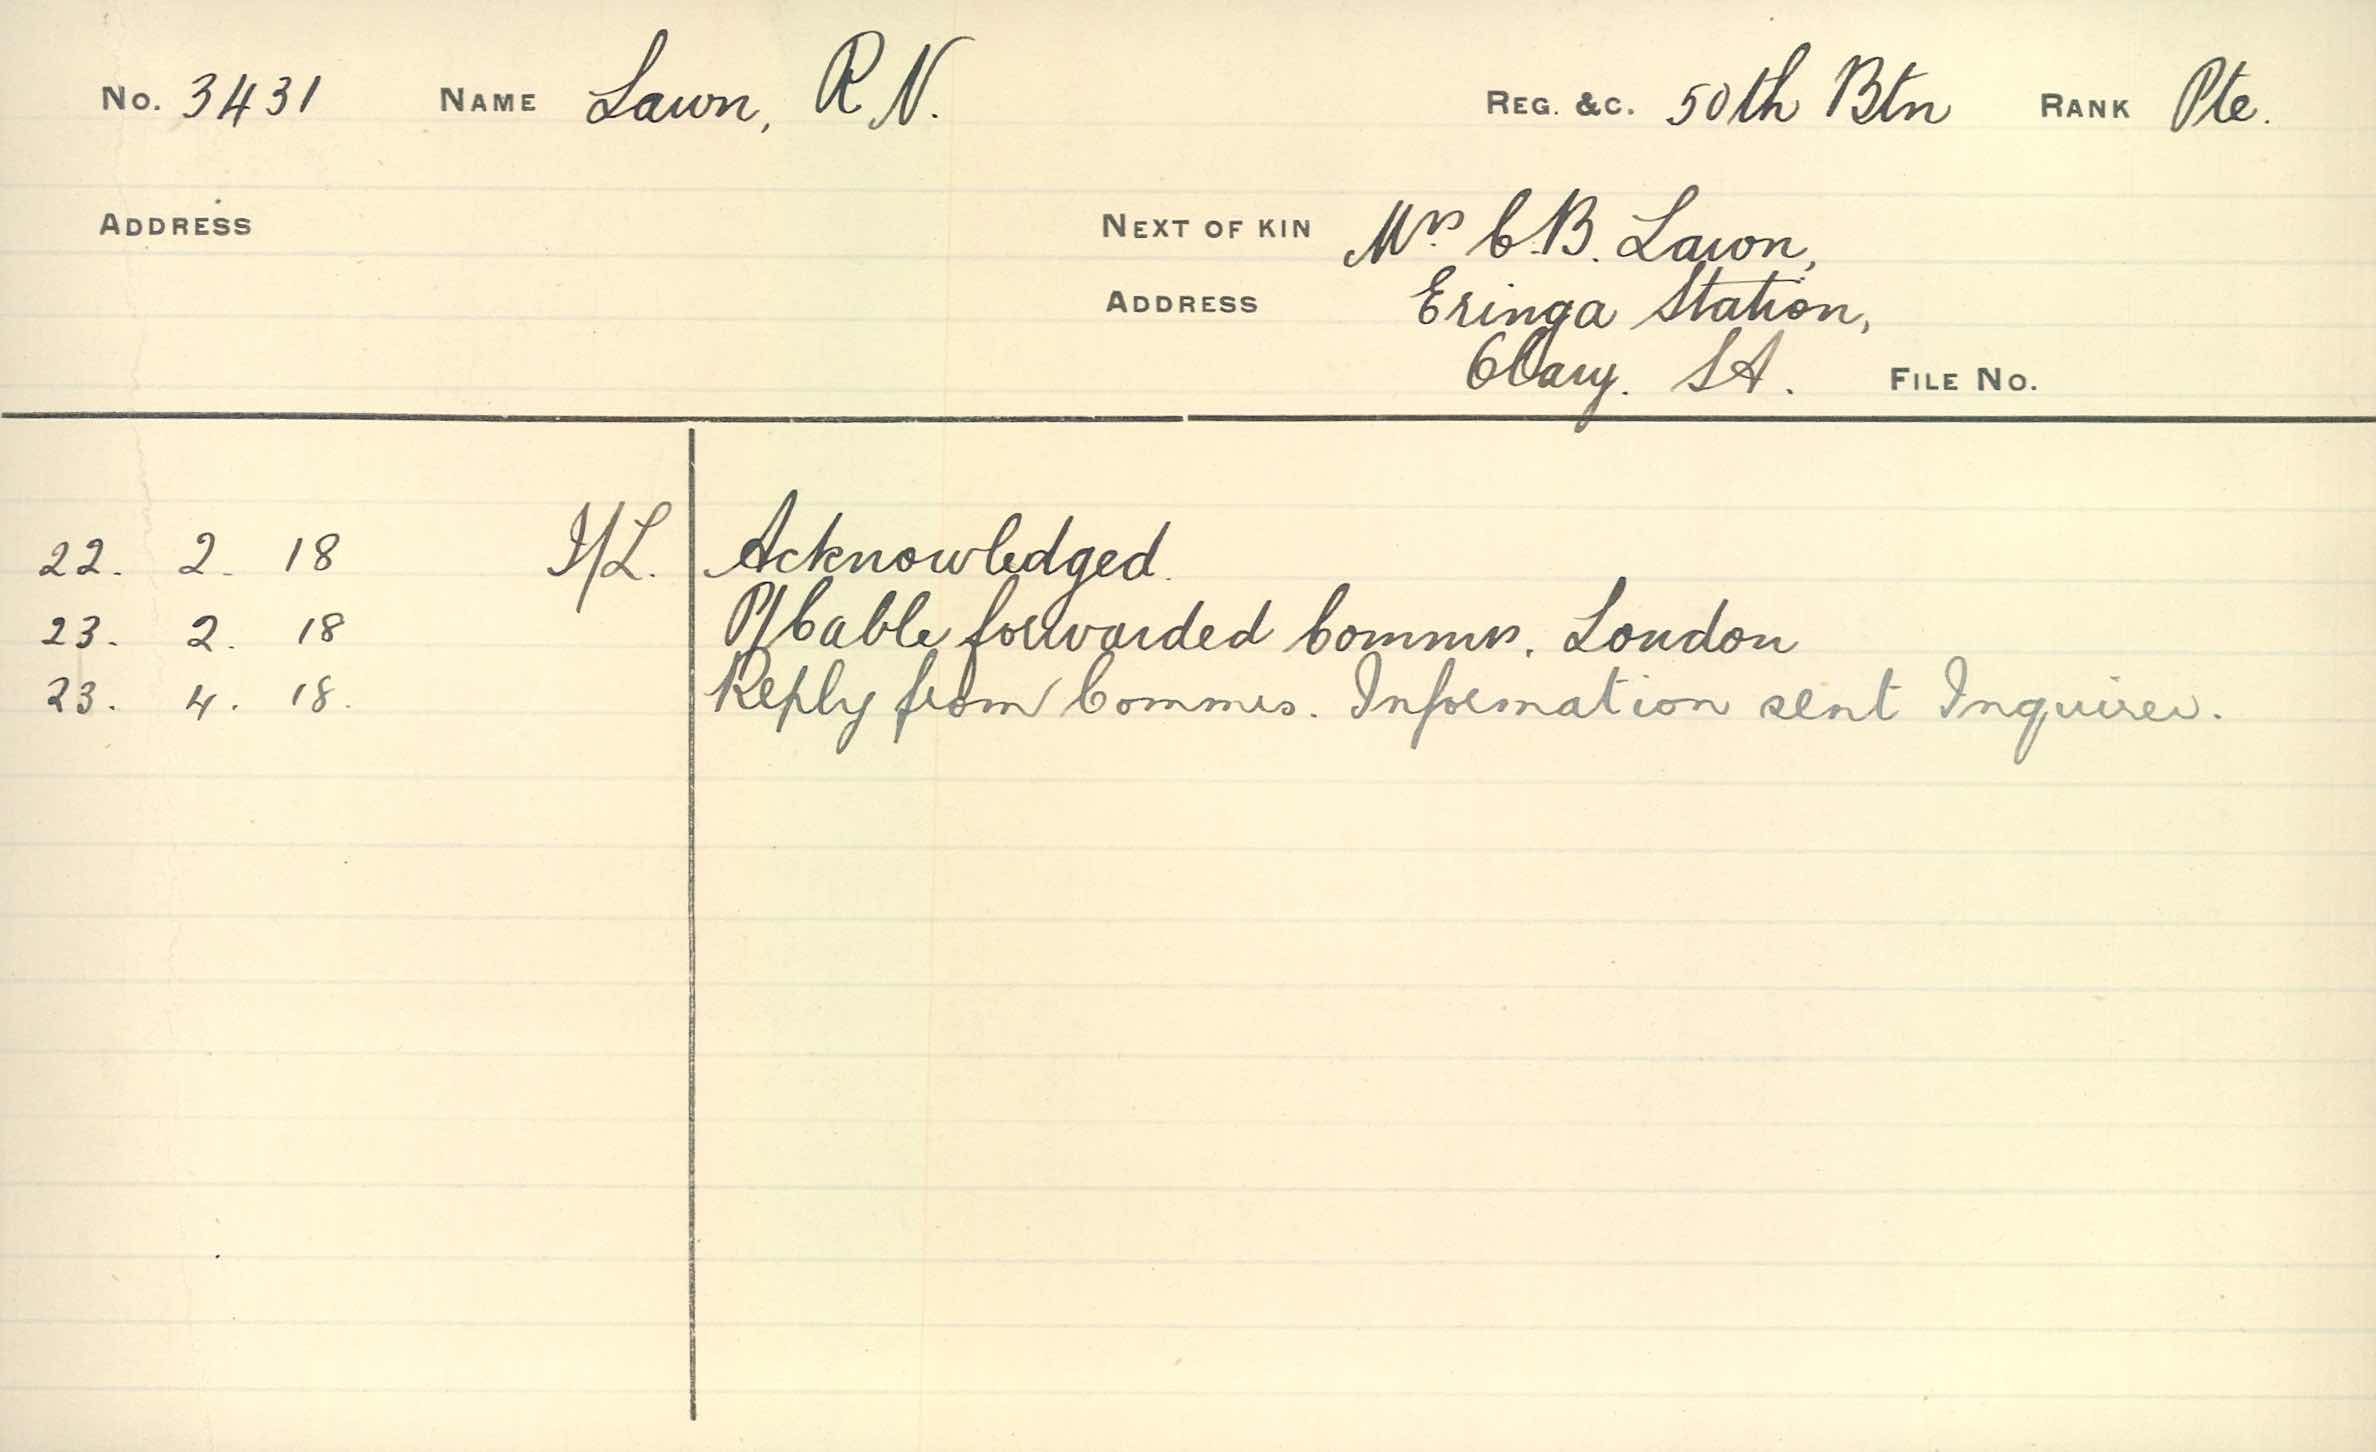 No. 3431 NAME Lawn, R N. REG. &C. 50th Btn RANK Pte.
ADDRESS NEXT OF KIN Mrs C.B. Lawn,
ADDRESS Eringa Station,
Olary. SA. FILE No.
22. 2. 18 I/L. Acknowledged.
23. 2. 18 P/Cable forwarded Commrs. London
23. 4. 18. Reply from Commrs. Information sent Inquirer.